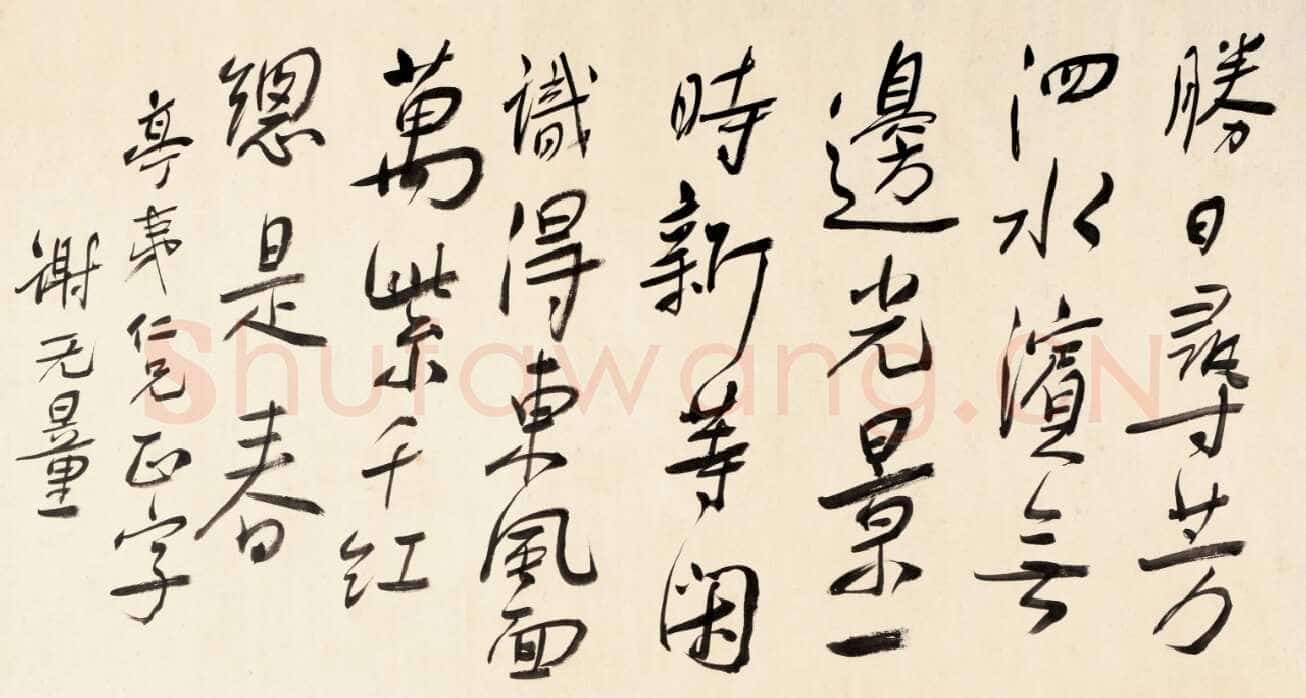 勝日尋芳
泗水濱無
邊光景一
時新等閑
識得東風面
萬紫千紅
總是春
亭夷仁兄正字
谢无量
Shufawang.CN